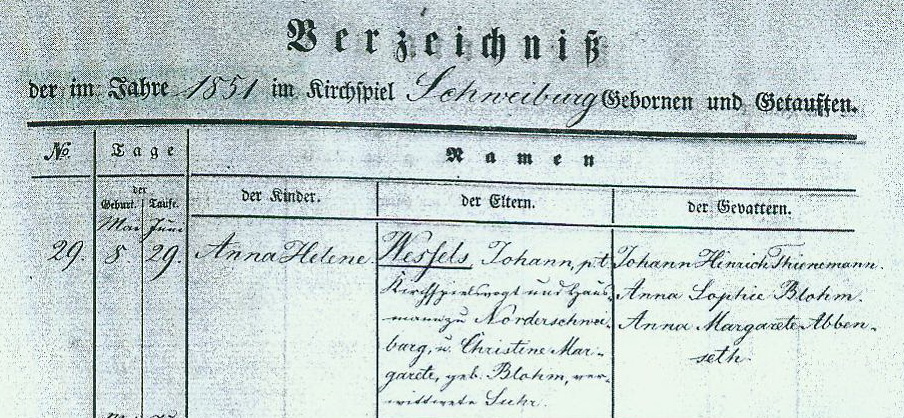 Verzeichniß
der im Jahre 1851 im Kirchspiel Schweiburg Gebornen und Getauften.
No.
Tage
Namen
der
Geburt.
Taufe.
der Kinder.
der Eltern.
der Gevattern.
Mai
Juni
29.
8.
29.
Anna Helene
Wessels, Johann, p.t.
Kirchspielsvogt und Haus-
mann zu Norderschwei-
burg, u. Christine Mar-
garete, geb. Blohm, ver-
wittwete Suhr.
Johann Hinrich Thienemann.
Anna Sophie Blohm.
Anna Margarete Abben-
seth.